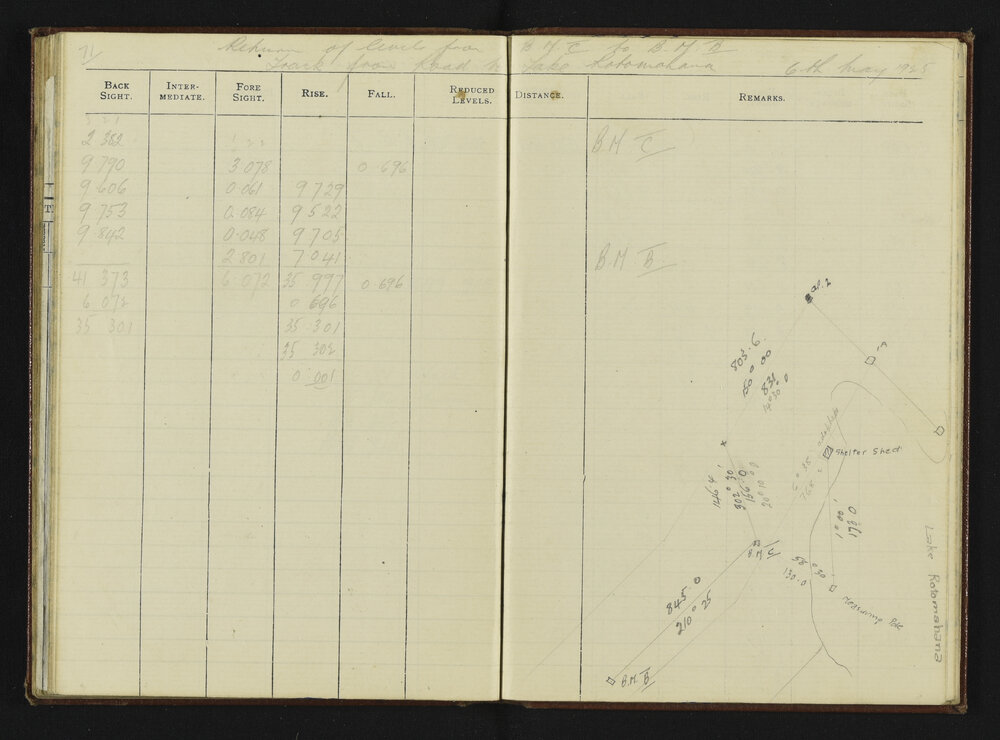 71
Return of levels from B.M. C to B.M. B
Track from Road to Lake Rotomahana 6th May 1925
BACK SIGHT. INTER-MEDIATE. FORE SIGHT. RISE. FALL. REDUCED LEVELS. DISTANCE. REMARKS.
2 382 B M C
9 790 3 078 0 696
9 606 0.061 9 729
9 753 0.084 9 522
9.842 0.048 9 705
2 801 7 041 B.M. B.
41 373 6 072 35 997 0 696
6 072 0 696
35 301 35 301
35 302
0 001
803.6
831
Shelter Shed
146.4
B.M. C
130.0
Measuring Pole
845.0
210° 25
B.M. B
Lake Rotomahana